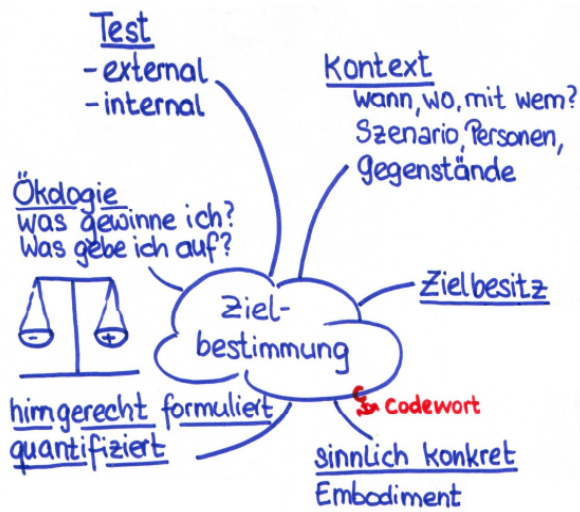 Test
- external
- internal
Kontext
wann, wo, mit wem?
Szenario, Personen,
Gegenstände
Ökologie
was gewinne ich?
Was gebe ich auf?
- +
Ziel-
bestimmung
Zielbesitz
hirngerecht formuliert
quantifiziert
Codewort
sinnlich konkret
Embodiment